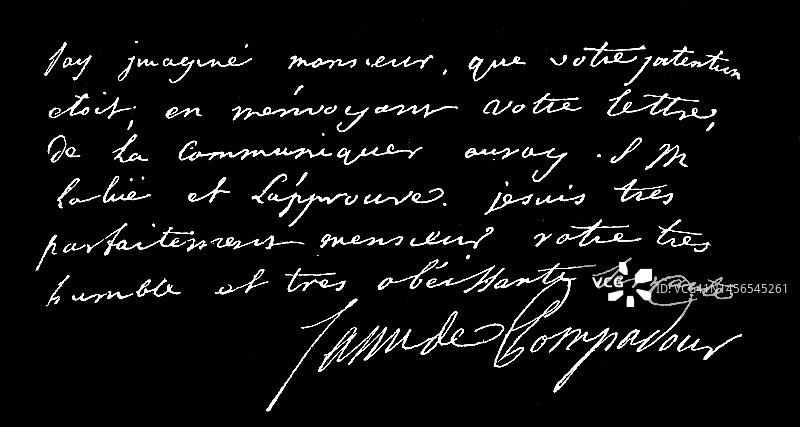 jay jmaginé monsieur, que votre jntention
etoit, en m'envoyant votre lettre,
de La Communiquer auroy. S M
La luë et L'approuve. je suis tres
parfaitement monsieur votre tres
humble et tres obéissante
VCG
ID:VCG41N1456545261
de Pompadour